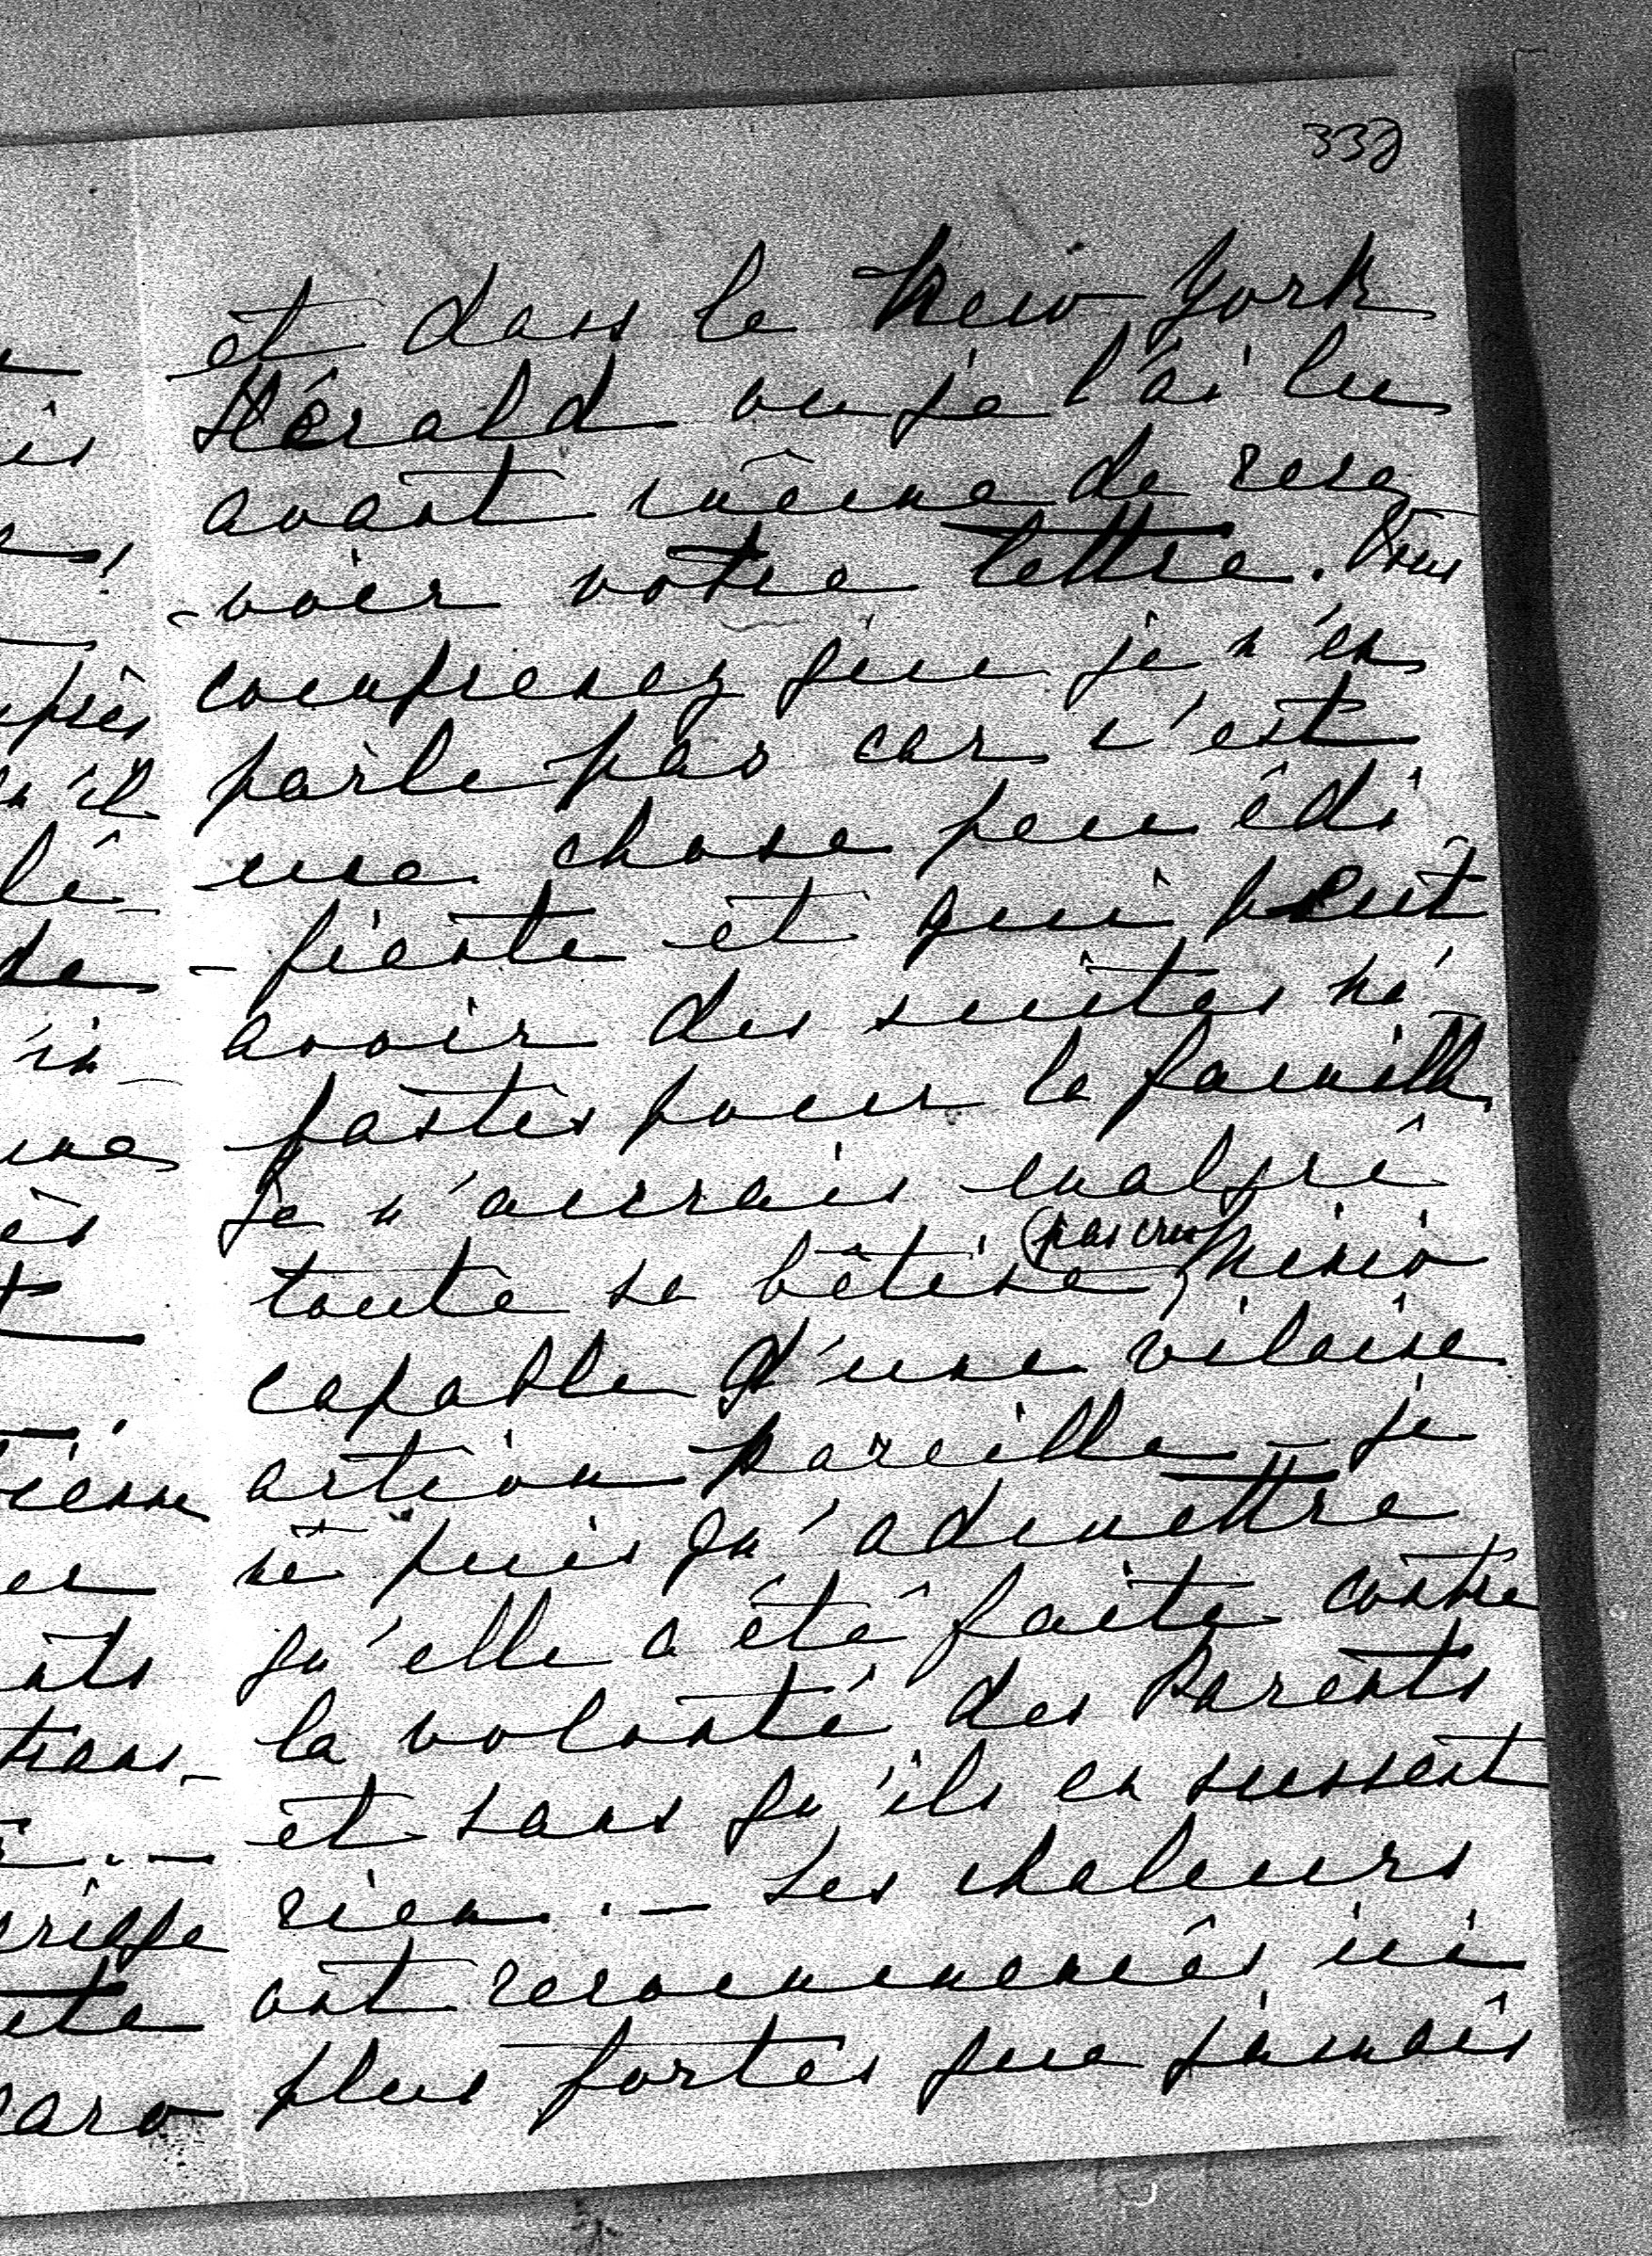 332
et dans le New York
Hérald ou je l'ai lu
avant même de rece
-voir votre lettre. Vous
comprenez que je n'en
parle pas car c'est
une chose peu édi
-fiante et qui peut
avoir des suites né
fastes pour la famille
Je n'aurais malgré
toute sa bêtise (pas cru) Ninio
capable d'une vilaine
action pareille - je
ne puis qu'admettre
qu'elle a été faite contre
la volonté des Parents
et sans qu'ils en sussent
rien. - Les chaleurs
ont recommencés ici
plus fortes que jamais